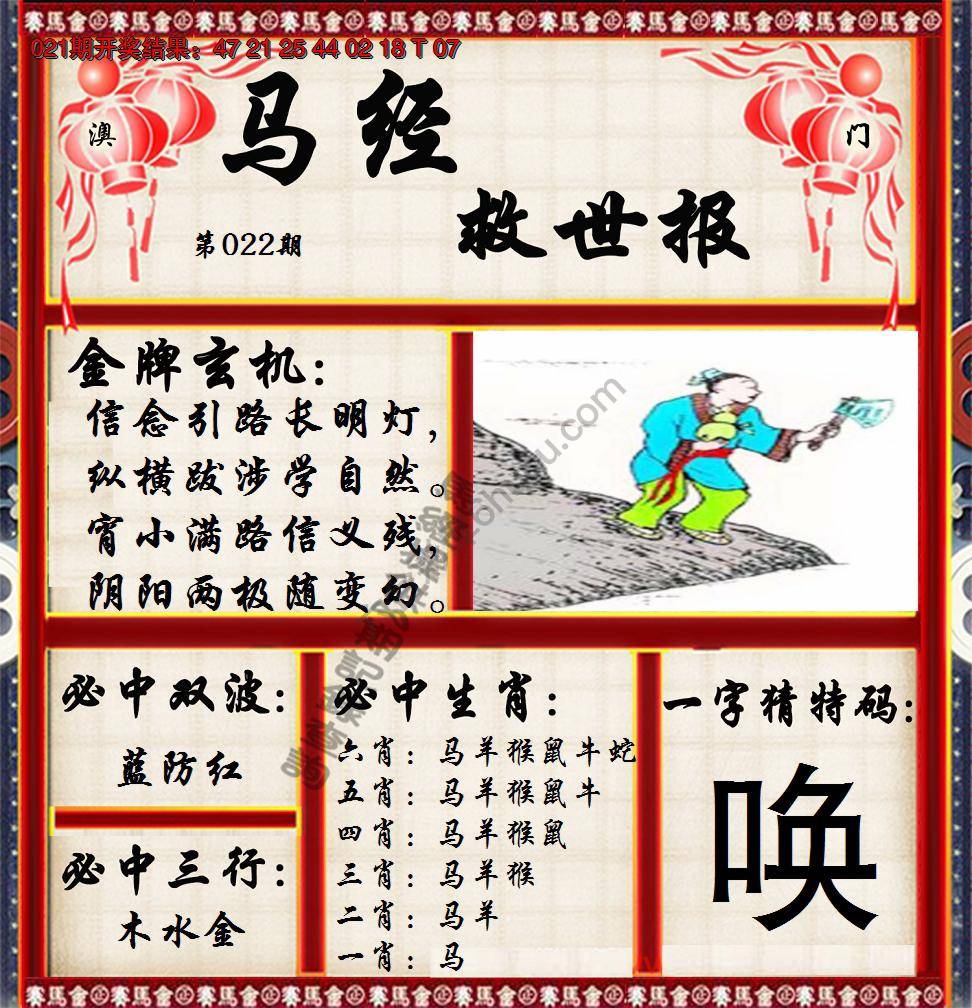 賽馬會賽馬會賽馬會賽馬會賽馬會賽馬會賽馬會
021期开奖结果：47 21 25 44 02 18 T 07
澳 门
马经
救世报
第022期
金牌玄机：
信念引路长明灯，
纵横跋涉学自然。
宵小满路信义残，
阴阳两极随变幻。
必中双波：
蓝防红
必中三行：
木水金
必中生肖：
六肖：马羊猴鼠牛蛇
五肖：马羊猴鼠牛
四肖：马羊猴鼠
三肖：马羊猴
二肖：马羊
一肖：马
一字猜特码：
唤